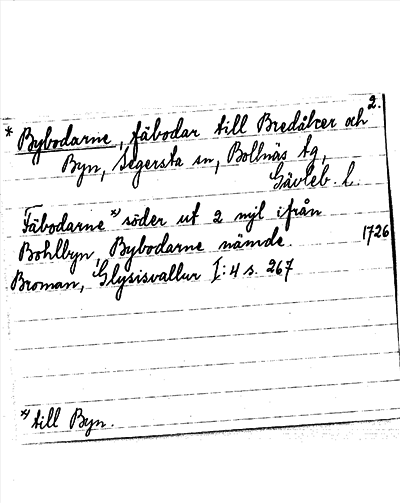 2.
* Bybodarne, fäbodar till Bredåker och
Byn, Segersta sn, Bollnäs tg,
Gävleb. l.
Fäbodarne *) söder ut 2 mjl ifrån
Bohlbyn, Bybodarne nämde. 1726
Broman, Glysisvallur I:4 s. 267
*) till Byn.